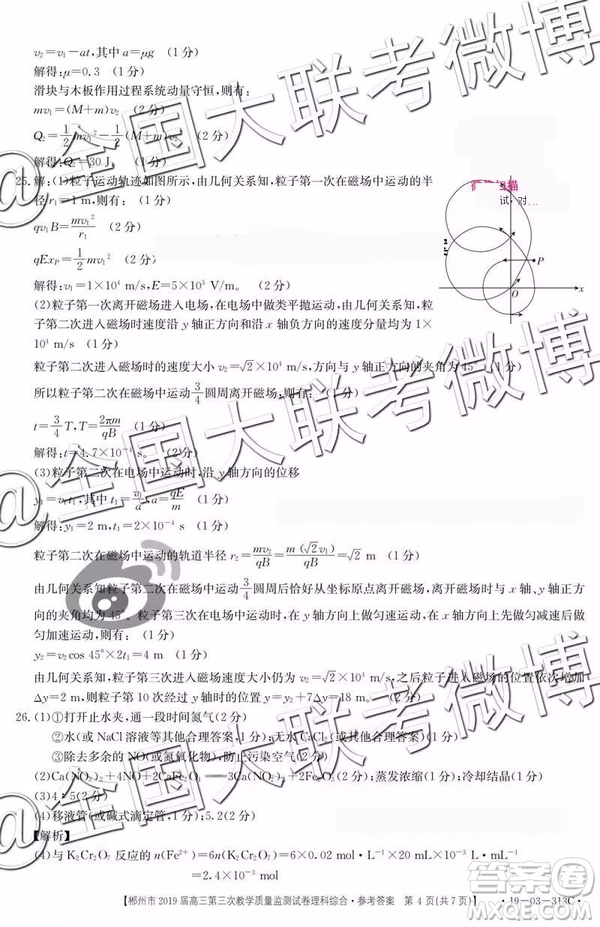 v₂=v₁-at,其中 a=μg (1分)
解得:μ=0.3 (1分)
滑块与木板作用过程系统动量守恒,则有:
mv₁=(M+m)v₂ (2分)
Q₂=1/2mv₁²-1/2(M+m)v₂² (2分)
解得:Q₂=30 J。 (1分)
25.解:(1)粒子运动轨迹如图所示,由几何关系知,粒子第一次在磁场中运动的半
径 r₁=1 m,则有: (1分)
qv₁B=mv₁²/r₁ (2分)
qExₚ=1/2mv₁² (2分)
解得:v₁=1×10⁴ m/s,E=5×10³ V/m。 (2分)
(2)粒子第一次离开磁场进入电场,在电场中做类平抛运动,由几何关系知,粒子
第二次进入磁场时速度沿 y 轴正方向和沿 x 轴负方向的速度分量大小均为 1×
10⁴ m/s (1分)
粒子第二次进入磁场时的速度大小 v₂=√2×10⁴ m/s,方向与 y 轴的夹角为 45° (1分)
所以粒子第二次在磁场中运动3/4圆周离开磁场,则有: (1分)
t=3/4T,T=2πm/qB (2分)
解得:t=4.7×10⁻⁴ s。 (2分)
(3)粒子第二次在电场中运动时,沿 y 轴方向的位移
y₁=v₁t₁,t₁=v₁/a,a=qE/m (1分)
解得:y₁=2 m,t₁=2×10⁻⁴ s (1分)
粒子第二次在磁场中运动的轨道半径 r₂=mv₂/qB=m(√2v₁)/qB=√2 m (1分)
由几何关系知,粒子第二次在磁场中运动3/4圆周后恰好从坐标原点离开磁场,方向与 x 轴正方
向的夹角均为45°。粒子第三次在电场中运动时,在 y 轴方向上做匀速运动,在 x 轴方向上先做匀减速后做
匀加速运动,则有: (1分)
y₂=v₂cos 45°×2t₁=4 m (1分)
由几何关系知,粒子第三次进入磁场时速度大小仍为 √2×10⁴ m/s,以后每次进入磁场时的位置依次增加
Δy=2 m,则粒子第 10 次经过磁场时的位置 y=y₂+7Δy=18 m。 (1分)
26.(1)①打开止水夹,通一段时间氮气(2分)
②水(或 NaCl 溶液等其他合理答案);无水 CaCl₂(或其他合理答案)(2分)
③除去多余的 NO(或氮氧化物),防止污染空气(2分)
(2)Ca(NO₂)₂+4NO+2CaFe₂O₄══3Ca(NO₂)₂+2Fe₂O₃(2分);蒸发浓缩(1分);冷却结晶(1分)
(3)4∶5(2分)
(4)移液管(或碱式滴定管);5.2(2分)
【解析】
(4)与 K₂Cr₂O₇ 反应的 n(Fe²⁺)=6n(K₂Cr₂O₇)=6×0.02 mol·L⁻¹×20 mL×10⁻³ L·mL⁻¹
=2.4×10⁻³ mol
试 对
P
O
x
【郴州市 2019 届高三第三次教学质量监测试卷理科综合·参考答案 第 4 页(共 7 页)】
·19-03-313C·
@全国大联考微博
@全国大联考微博
@全国大联考微博
答案圈